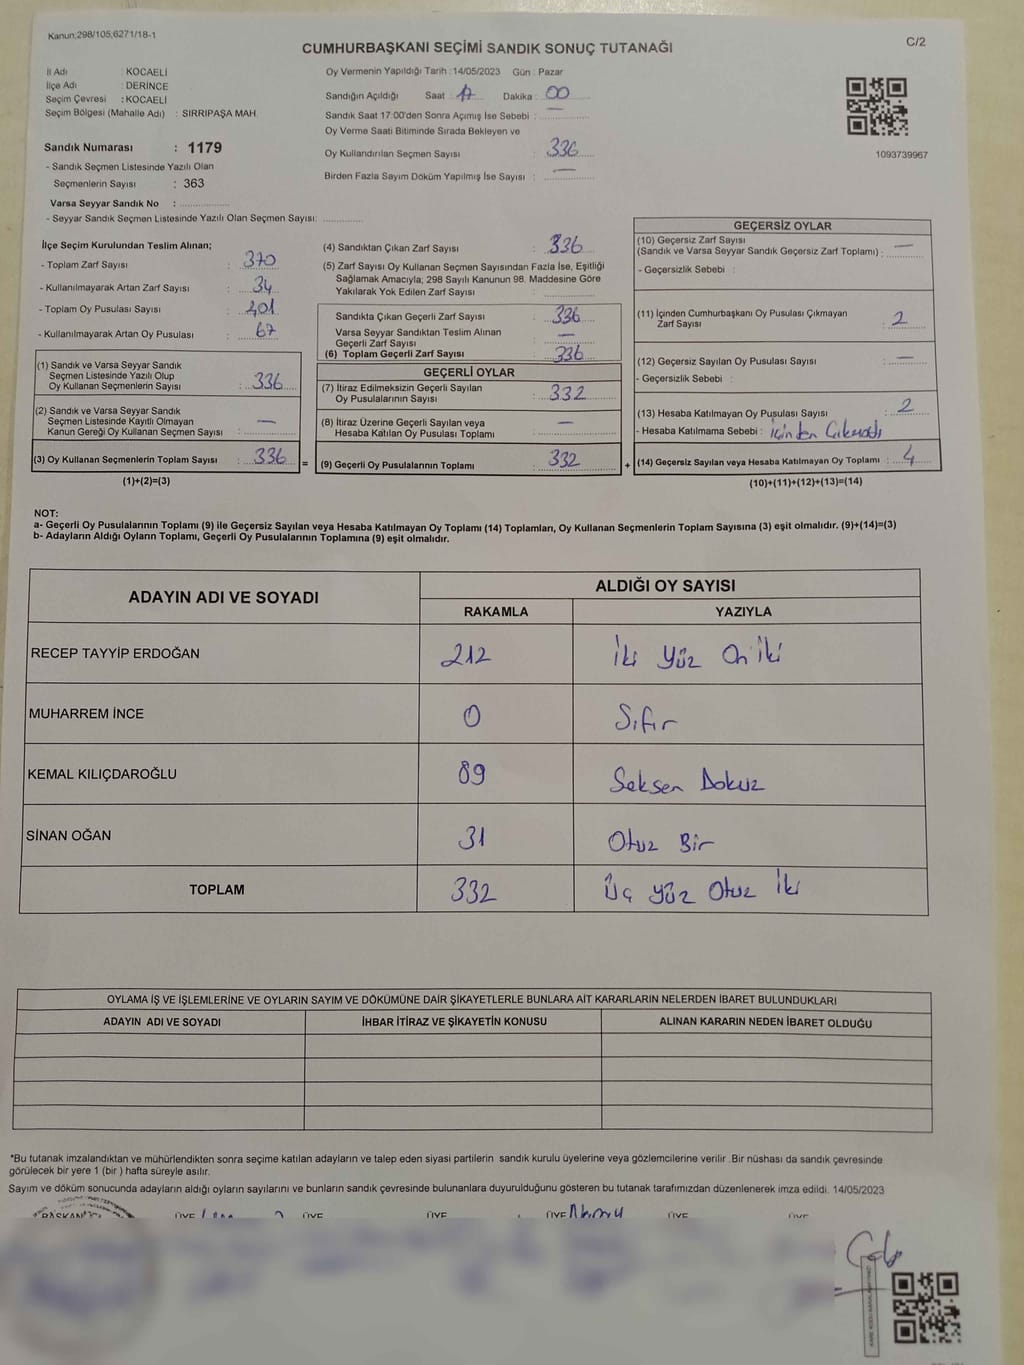 Kanun;298/105;6271/18-1
C/2
CUMHURBAŞKANI SEÇİMİ SANDIK SONUÇ TUTANAĞI
İl Adı : KOCAELİ
İlçe Adı : DERİNCE
Seçim Çevresi : KOCAELİ
Seçim Bölgesi (Mahalle Adı) : SIRRIPAŞA MAH.
Sandık Numarası : 1179
- Sandık Seçmen Listesinde Yazılı Olan
Seçmenlerin Sayısı : 363
Varsa Seyyar Sandık No :
- Seyyar Sandık Seçmen Listesinde Yazılı Olan Seçmen Sayısı:
Oy Vermenin Yapıldığı Tarih : 14/05/2023 Gün : Pazar
Sandığın Açıldığı Saat : 17 Dakika : 00
Sandık Saat 17:00'den Sonra Açımış İse Sebebi : —
Oy Verme Saati Bitiminde Sırada Bekleyen ve
Oy Kullandırılan Seçmen Sayısı : 336
Birden Fazla Sayım Döküm Yapılmış İse Sayısı : —
1093739967
İlçe Seçim Kurulundan Teslim Alınan;
- Toplam Zarf Sayısı : 370
- Kullanılmayarak Artan Zarf Sayısı : 34
- Toplam Oy Pusulası Sayısı : 401
- Kullanılmayarak Artan Oy Pusulası : 67
(1) Sandık ve Varsa Seyyar Sandık
Seçmen Listesinde Yazılı Olup
Oy Kullanan Seçmenlerin Sayısı : 336
(2) Sandık ve Varsa Seyyar Sandık
Seçmen Listesinde Kayıtlı Olmayan
Kanun Gereği Oy Kullanan Seçmen Sayısı : —
(3) Oy Kullanan Seçmenlerin Toplam Sayısı : 336 =
(1)+(2)=(3)
(4) Sandıktan Çıkan Zarf Sayısı : 336
(5) Zarf Sayısı Oy Kullanan Seçmen Sayısından Fazla İse, Eşitliği
Sağlamak Amacıyla; 298 Sayılı Kanunun 98. Maddesine Göre
Yakılarak Yok Edilen Zarf Sayısı :
Sandıkta Çıkan Geçerli Zarf Sayısı : 336
Varsa Seyyar Sandıktan Teslim Alınan
Geçerli Zarf Sayısı : —
(6) Toplam Geçerli Zarf Sayısı : 336
GEÇERLİ OYLAR
(7) İtiraz Edilmeksizin Geçerli Sayılan
Oy Pusulalarının Sayısı : 332
(8) İtiraz Üzerine Geçerli Sayılan veya
Hesaba Katılan Oy Pusulası Toplamı : —
(9) Geçerli Oy Pusulalarının Toplamı : 332 +
GEÇERSİZ OYLAR
(10) Geçersiz Zarf Sayısı
(Sandık ve Varsa Seyyar Sandık Geçersiz Zarf Toplamı) : —
- Geçersizlik Sebebi :
(11) İçinden Cumhurbaşkanı Oy Pusulası Çıkmayan
Zarf Sayısı : 2
(12) Geçersiz Sayılan Oy Pusulası Sayısı : —
- Geçersizlik Sebebi :
(13) Hesaba Katılmayan Oy Pusulası Sayısı : 2
- Hesaba Katılmama Sebebi : içinden Çıkmadı
(14) Geçersiz Sayılan veya Hesaba Katılmayan Oy Toplamı : 4
(10)+(11)+(12)+(13)=(14)
NOT:
a- Geçerli Oy Pusulalarının Toplamı (9) ile Geçersiz Sayılan veya Hesaba Katılmayan Oy Toplamı (14) Toplamları, Oy Kullanan Seçmenlerin Toplam Sayısına (3) eşit olmalıdır. (9)+(14)=(3)
b- Adayların Aldığı Oyların Toplamı, Geçerli Oy Pusulalarının Toplamına (9) eşit olmalıdır.
ADAYIN ADI VE SOYADI
ALDIĞI OY SAYISI
RAKAMLA YAZIYLA
RECEP TAYYİP ERDOĞAN 212 İki Yüz On İki
MUHARREM İNCE 0 Sıfır
KEMAL KILIÇDAROĞLU 89 Seksen Dokuz
SİNAN OĞAN 31 Otuz Bir
TOPLAM 332 Üç Yüz Otuz İki
OYLAMA İŞ VE İŞLEMLERİNE VE OYLARIN SAYIM VE DÖKÜMÜNE DAİR ŞİKAYETLERLE BUNLARA AİT KARARLARIN NELERDEN İBARET BULUNDUKLARI
ADAYIN ADI VE SOYADI İHBAR İTİRAZ VE ŞİKAYETİN KONUSU ALINAN KARARIN NEDEN İBARET OLDUĞU
*Bu tutanak imzalandıktan ve mühürlendikten sonra seçime katılan adayların ve talep eden siyasi partilerin sandık kurulu üyelerine veya gözlemcilerine verilir .Bir nüshası da sandık çevresinde
görülecek bir yere 1 (bir ) hafta süreyle asılır.
Sayım ve döküm sonucunda adayların aldığı oyların sayılarını ve bunların sandık çevresinde bulunanlara duyurulduğunu gösteren bu tutanak tarafımızdan düzenlenerek imza edildi. 14/05/2023
BAŞKAN ÜYE ÜYE ÜYE ÜYE ÜYE ÜYE